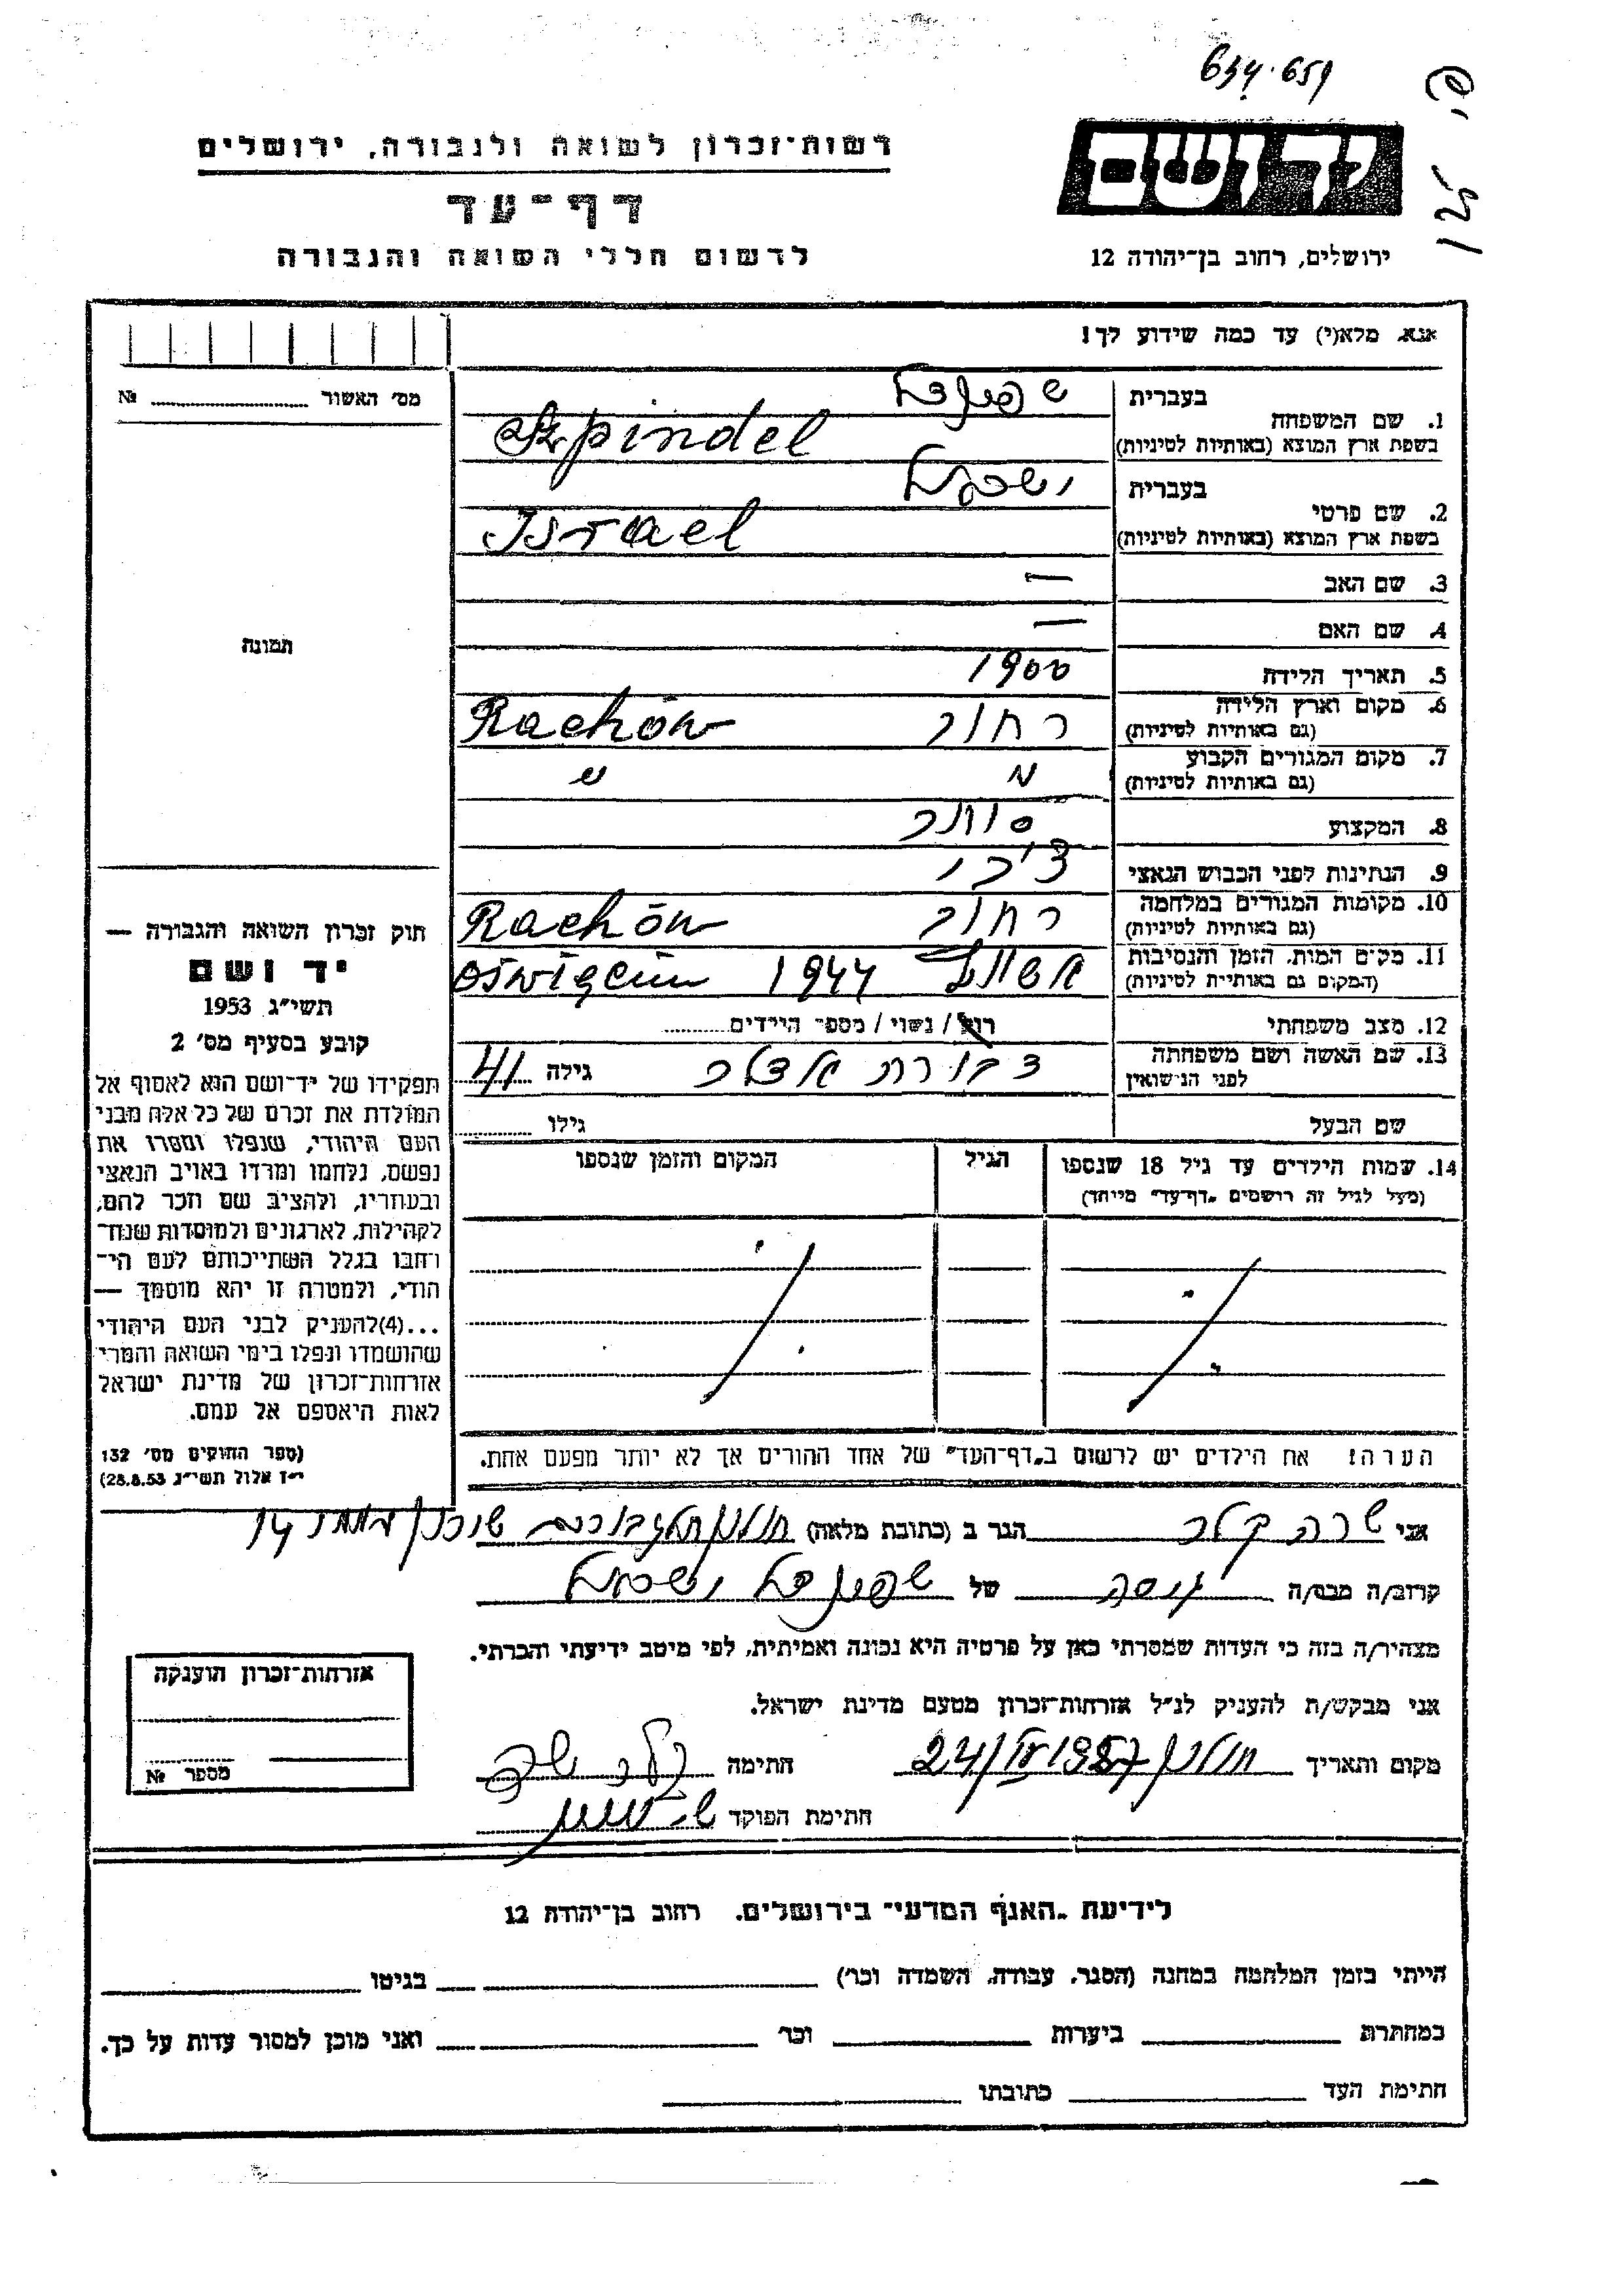 634.659
יד ושם
רשות־זכרון לשואה ולגבורה, ירושלים
דף־עד
לרשום חללי השואה והגבורה
ירושלים, רחוב בן־יהודה 12
אנא, מלא(י) עד כמה שידוע לך!
מס' האשור № ........
1. שם המשפחה
בעברית שפינדל
בשפת ארץ המוצא (באותיות לטיניות) Szpindel
2. שם פרטי
בעברית ישראל
בשפת ארץ המוצא (באותיות לטיניות) Israel
3. שם האב —
4. שם האם —
5. תאריך הלידה 1900
6. מקום וארץ הלידה (גם באותיות לטיניות) רחוב Rachów
7. מקום המגורים הקבוע (גם באותיות לטיניות) " "
8. המקצוע סוחר
9. הנתינות לפני הכבוש הנאצי צ'כי
10. מקומות המגורים במלחמה (גם באותיות לטיניות) רחוב Rachów
11. מקום המות, הזמן והנסיבות (המקום גם באותיות לטיניות) 1944 Oświęcim
12. מצב משפחתי רוק / נשוי / מספר הילדים ........
13. שם האשה ושם משפחתה לפני הנישואין דבורה אדלר גילה 41
שם הבעל גילו ........
14. שמות הילדים עד גיל 18 שנספו
(מעל לגיל זה רושמים „דף־עד" מיוחד)
הגיל
המקום והזמן שנספו
הערה: את הילדים יש לרשום ב„דף־העד" של אחד ההורים אך לא יותר מפעם אחת.
תמונה
חוק זכרון השואה והגבורה —
יד ושם
תשי"ג 1953
קובע בסעיף מס' 2
תפקידו של יד־ושם הוא לאסוף אל
המולדת את זכרם של כל אלה מבני
העם היהודי, שנפלו ומסרו את
נפשם, נלחמו ומרדו באויב הנאצי
ובעוזריו, ולהציב שם וזכר להם,
לקהילות, לארגונים ולמוסדות שנח־
רבו בגלל השתייכותם לעם הי־
הודי, ולמטרה זו יהא מוסמך —
...(4)להעניק לבני העם היהודי
שהושמדו ונפלו בימי השואה והמרי
אזרחות־זכרון של מדינת ישראל
לאות היאספם אל עמם.
(ספר החוקים מס' 132
י"ז אלול תשי"ג 28.8.53)
אני שרה קלר הגר ב (כתובת מלאה) חולון 14
קרוב/ה מבט/ה גיסה של שפינדל ישראל
מצהיר/ה בזה כי העדות שמסרתי כאן על פרטיה היא נכונה ואמיתית, לפי מיטב ידיעתי והכרתי.
אני מבקש/ת להעניק לנ"ל אזרחות־זכרון מטעם מדינת ישראל.
מקום ותאריך חולון חתימה קלר שרה
חתימת הפוקד
אזרחות־זכרון הוענקה
מספר №
לידיעת „האגף המדעי" בירושלים. רחוב בן־יהודה 12
הייתי בזמן המלחמה במחנה (הסגר, עבודה, השמדה וכר') בגיטו
במחתרת ביערות וכר' ואני מוכן למסור עדות על כך.
חתימת העד כתובתו